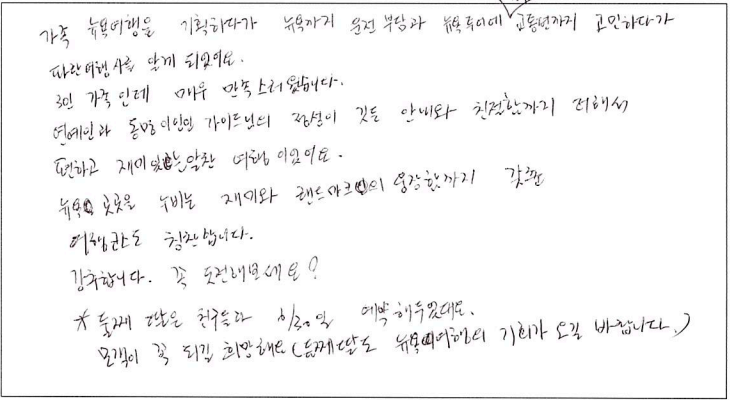 가족 뉴욕여행을 기획하다가 뉴욕까지 운전 부담과 뉴욕투어에 교통편까지 고민하다가
파란여행사를 알게 되었어요.
3인 가족인데 매우 만족스러웠습니다.
연예인과 동명이인인 가이드님의 정성이 깃든 안내와 친절함까지 더해서
편하고 재미있는 알찬 여행이었어요.
뉴욕 곳곳을 누비는 재미와 랜드마크의 웅장함까지 갖춘
여행코스도 칭찬합니다.
강추합니다. 꼭 도전해보세요?
* 둘째 딸은 친구들과 예약해두었대요.
모객이 꼭 되길 희망해요 (둘째딸도 뉴욕여행의 기회가 오길 바랍니다.)